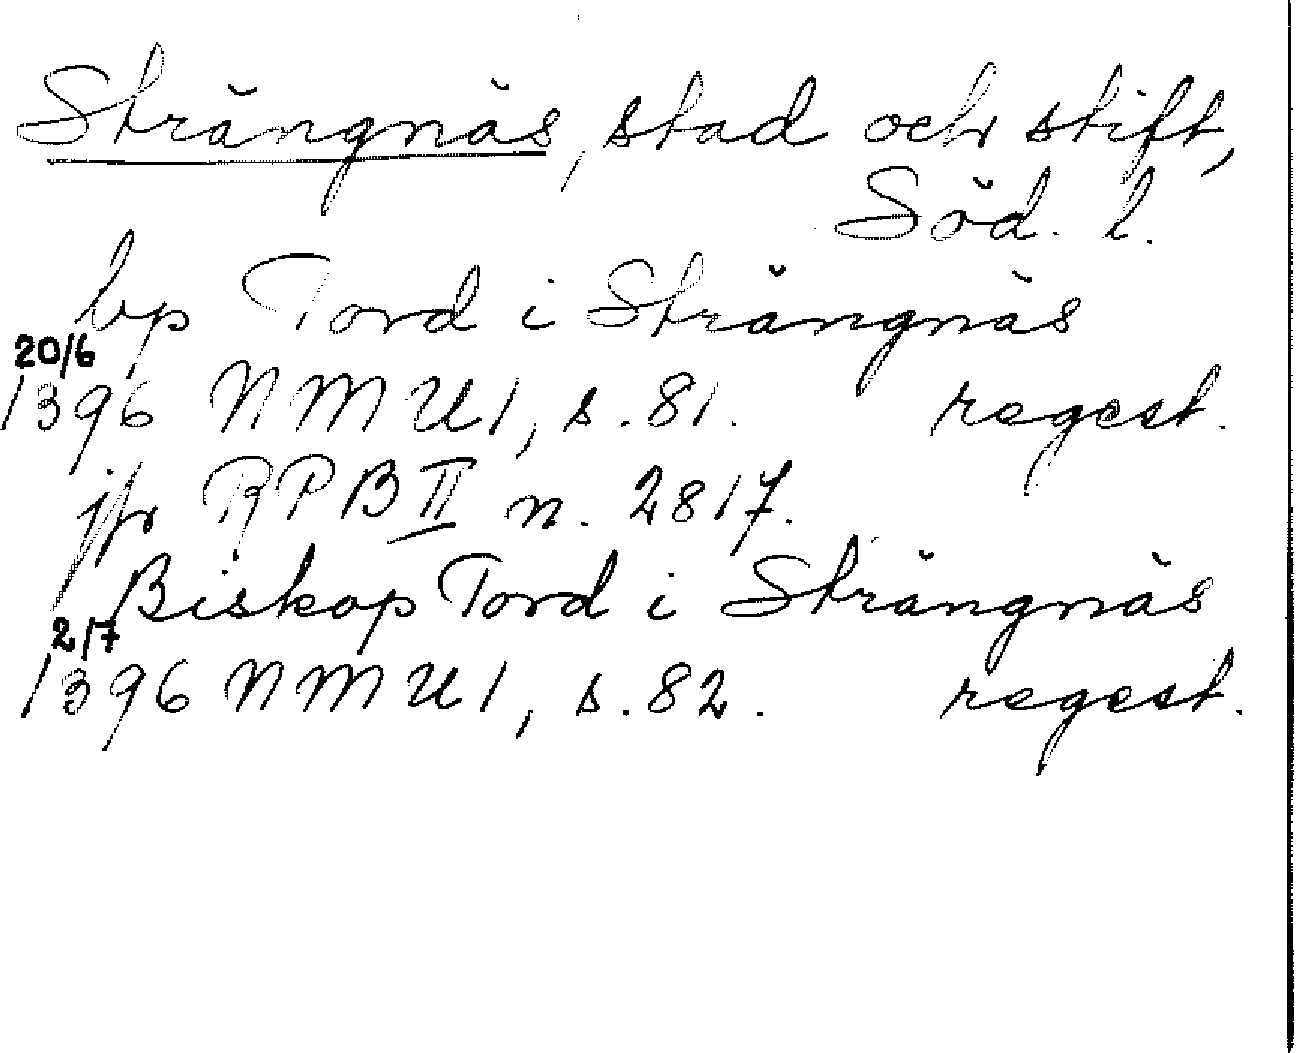 Strängnäs, stad och stift,
Söd. l.
bp Tord i Strängnäs
20/6
1396 NMU1, s. 81. regest.
jfr RPB II n. 2817.
Biskop Tord i Strängnäs
2/7
1396 NMU1, s. 82. regest.